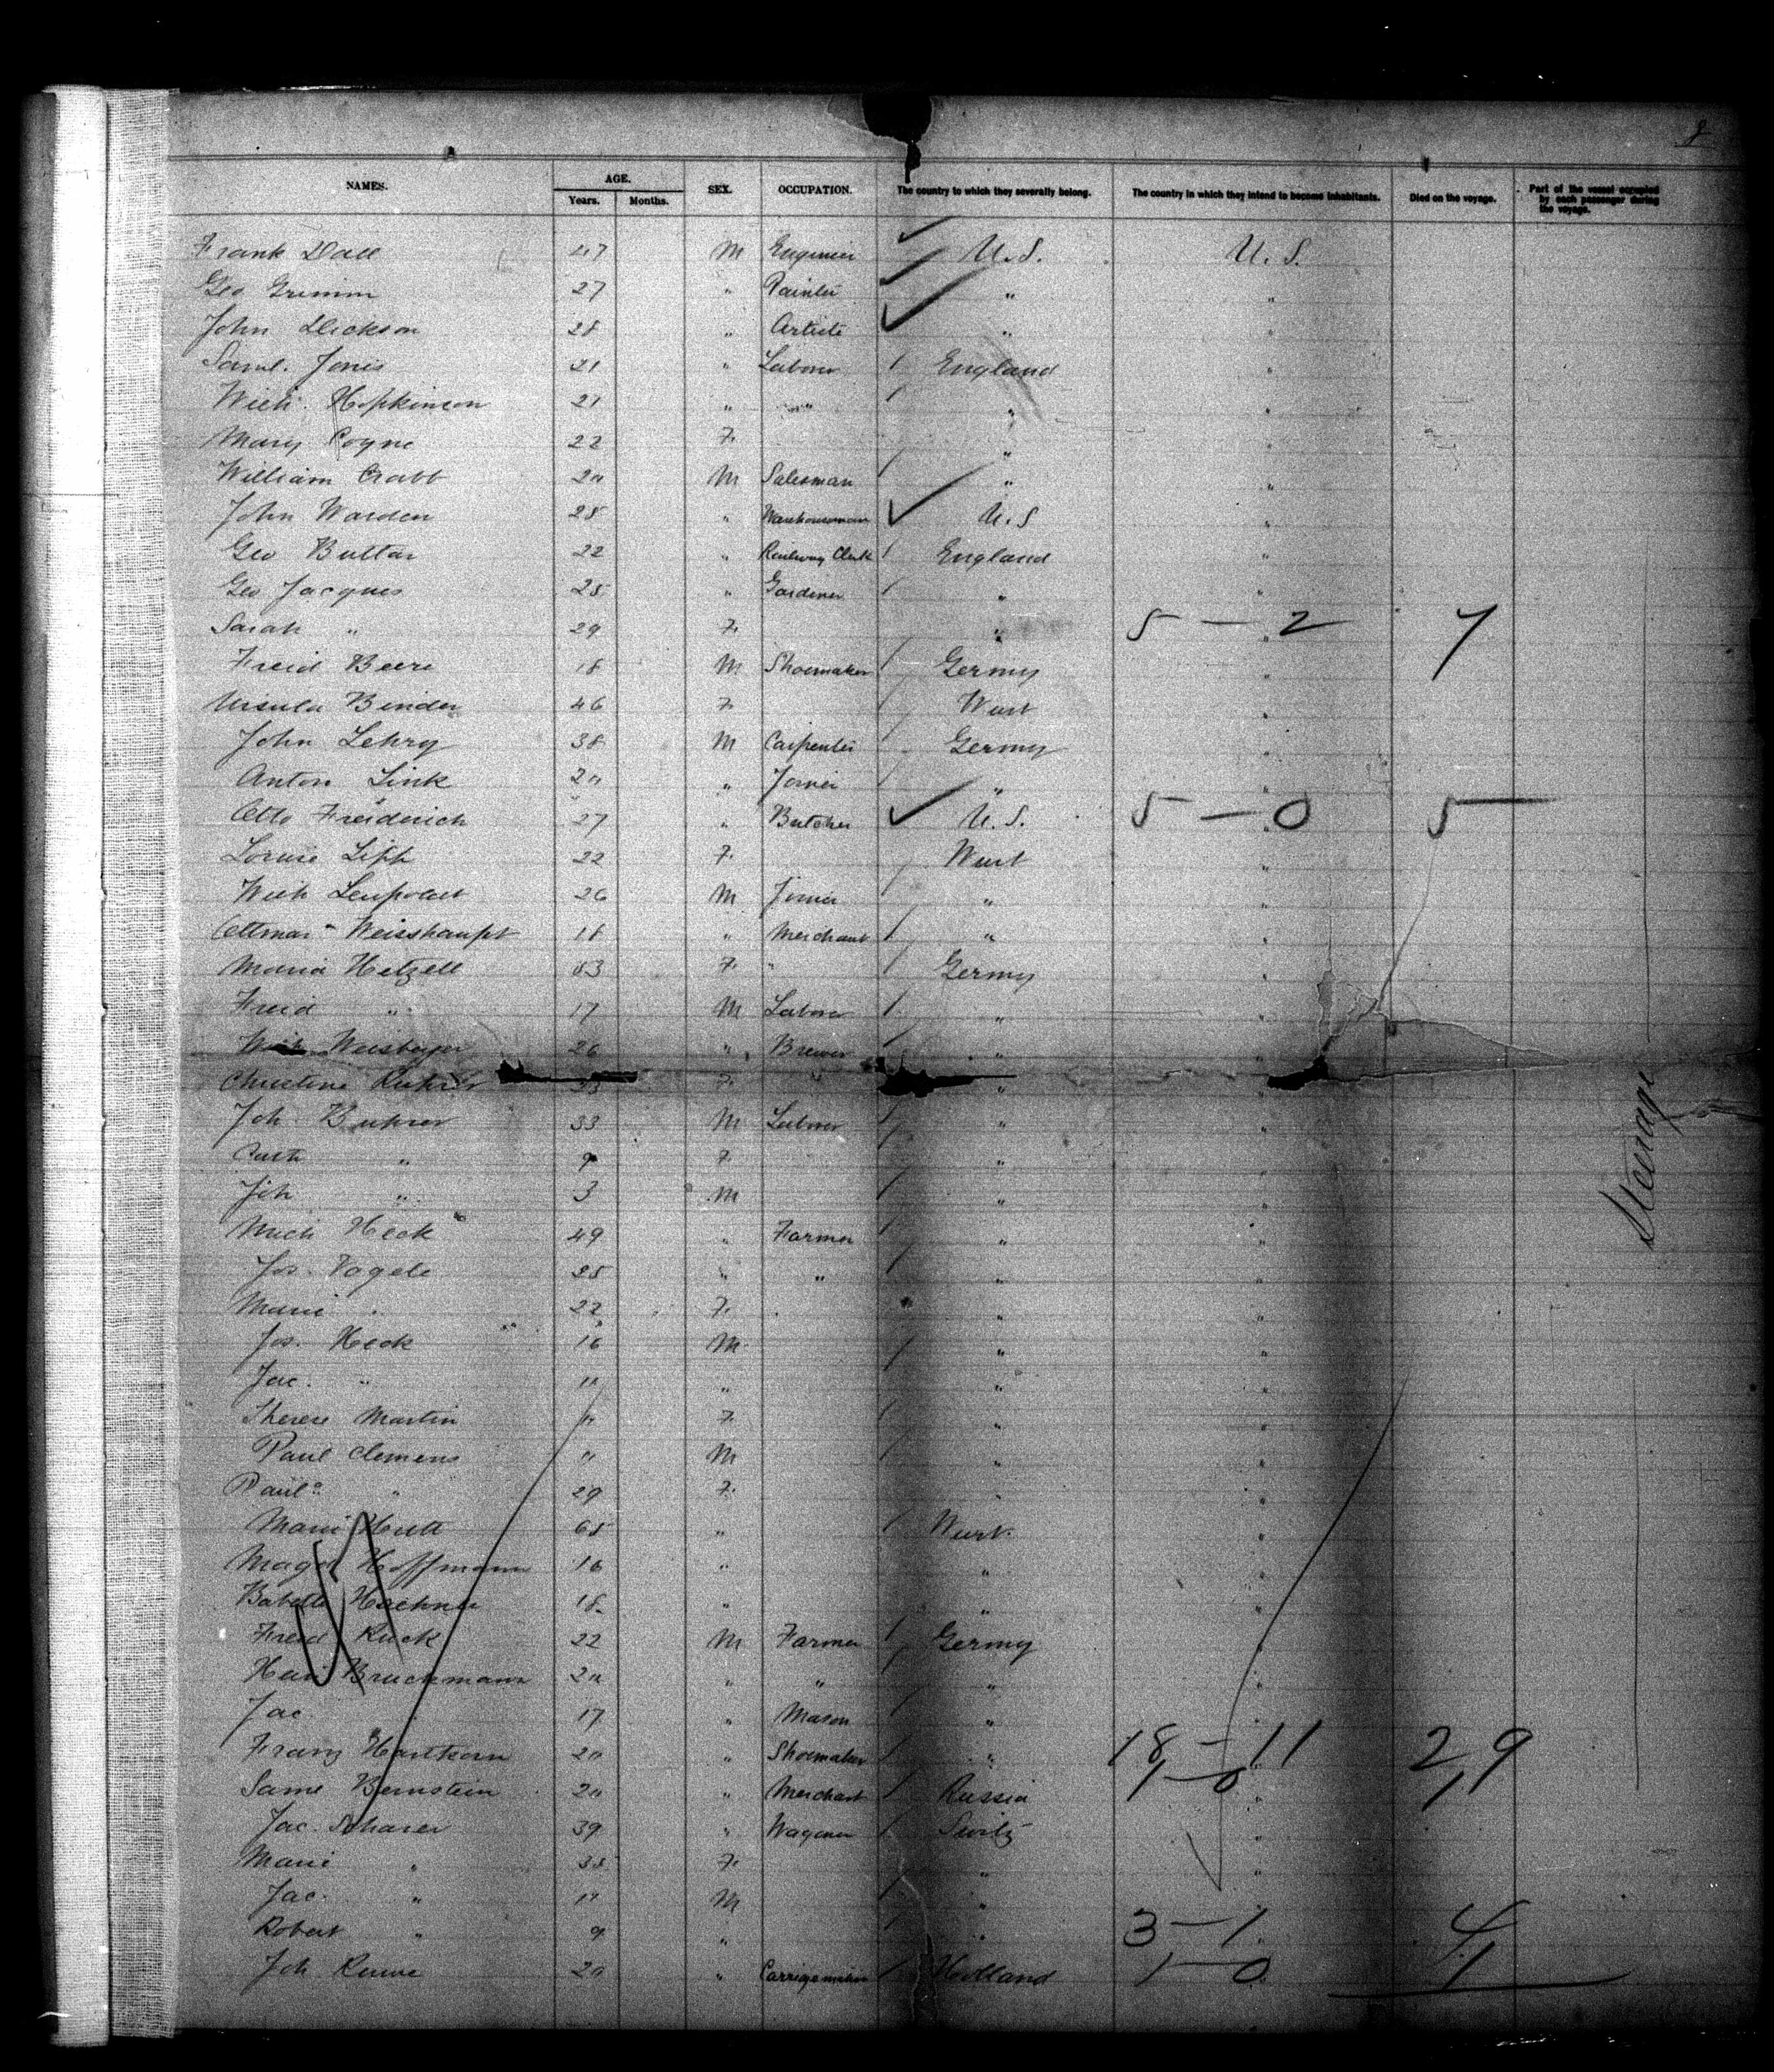 8
NAMES. AGE. SEX. OCCUPATION. The country to which they severally belong. The country in which they intend to become inhabitants. Died on the voyage. Part of the vessel occupied by each passenger during the voyage.
Years. Months.
Frank Dall 47 M Engineer U.S. U.S.
Geo Grimm 27 " Painter " "
John Dickson 28 " Artiste " "
Saml. Jones 21 " Laborer England "
Will. Hopkinson 21 " " " "
Mary Coyne 22 F. " "
William Crabb 20 M Salesman " "
John Warden 28 " Warehouseman U.S "
Geo Buttar 22 " Railway Clerk England "
Geo Jacques 25 " Gardener " "
Sarah " 29 F. " " 5 — 2 7
Freid Beere 18 M Shoemaker Germy "
Ursula Binder 46 F. Wurt "
John Lehry 38 M Carpenter Germy "
Anton Link 20 " Joiner " "
Otto Freiderich 27 " Butcher U.S. " 5 — 0 5
Louise Lipp 22 F. Wurt "
Wilh Leupoldt 26 M Joiner " "
Ottmar Weisshaupt 18 " Merchant " "
Maria Hetzell 53 F. " Germy "
Freid " 17 M Laborer " "
Weisberger 26 " Brewer " "
Christine 33 F. " " "
Joh. Buhrer 33 M Laborer " "
" 9 F. " "
Joh " 3 M " "
Mich Heck 49 " Farmer " "
Jos. Vogele 25 " " " "
Marie " 22 F. " "
Jos. Heck 16 M " "
Jac. " 11 " " "
Therese Martin 11 F. " "
Paul Clemens 11 M " "
Paula " 29 F. " "
Marie Hutt 65 " Wurt. "
Magd Hoffmann 16 " " "
Babette Haehner 18 " " "
Freid Ruck 22 M Farmer Germy "
Heinr Bruckmann 20 " " " "
Jac 17 " Mason " "
Franz Hartkorn 20 " Shoemaker " " 18 — 11 29
Same Bernstein 20 " Merchant Russia " 1 — 0 1
Jac. Scharer 39 " Wagoner Switz "
Marie " 35 F. " "
Jac. " 11 M " "
Robert " 9 " " " 3 — 1 4
Joh 20 " Carrigemaker Holland " 1 — 0 1
Steerage